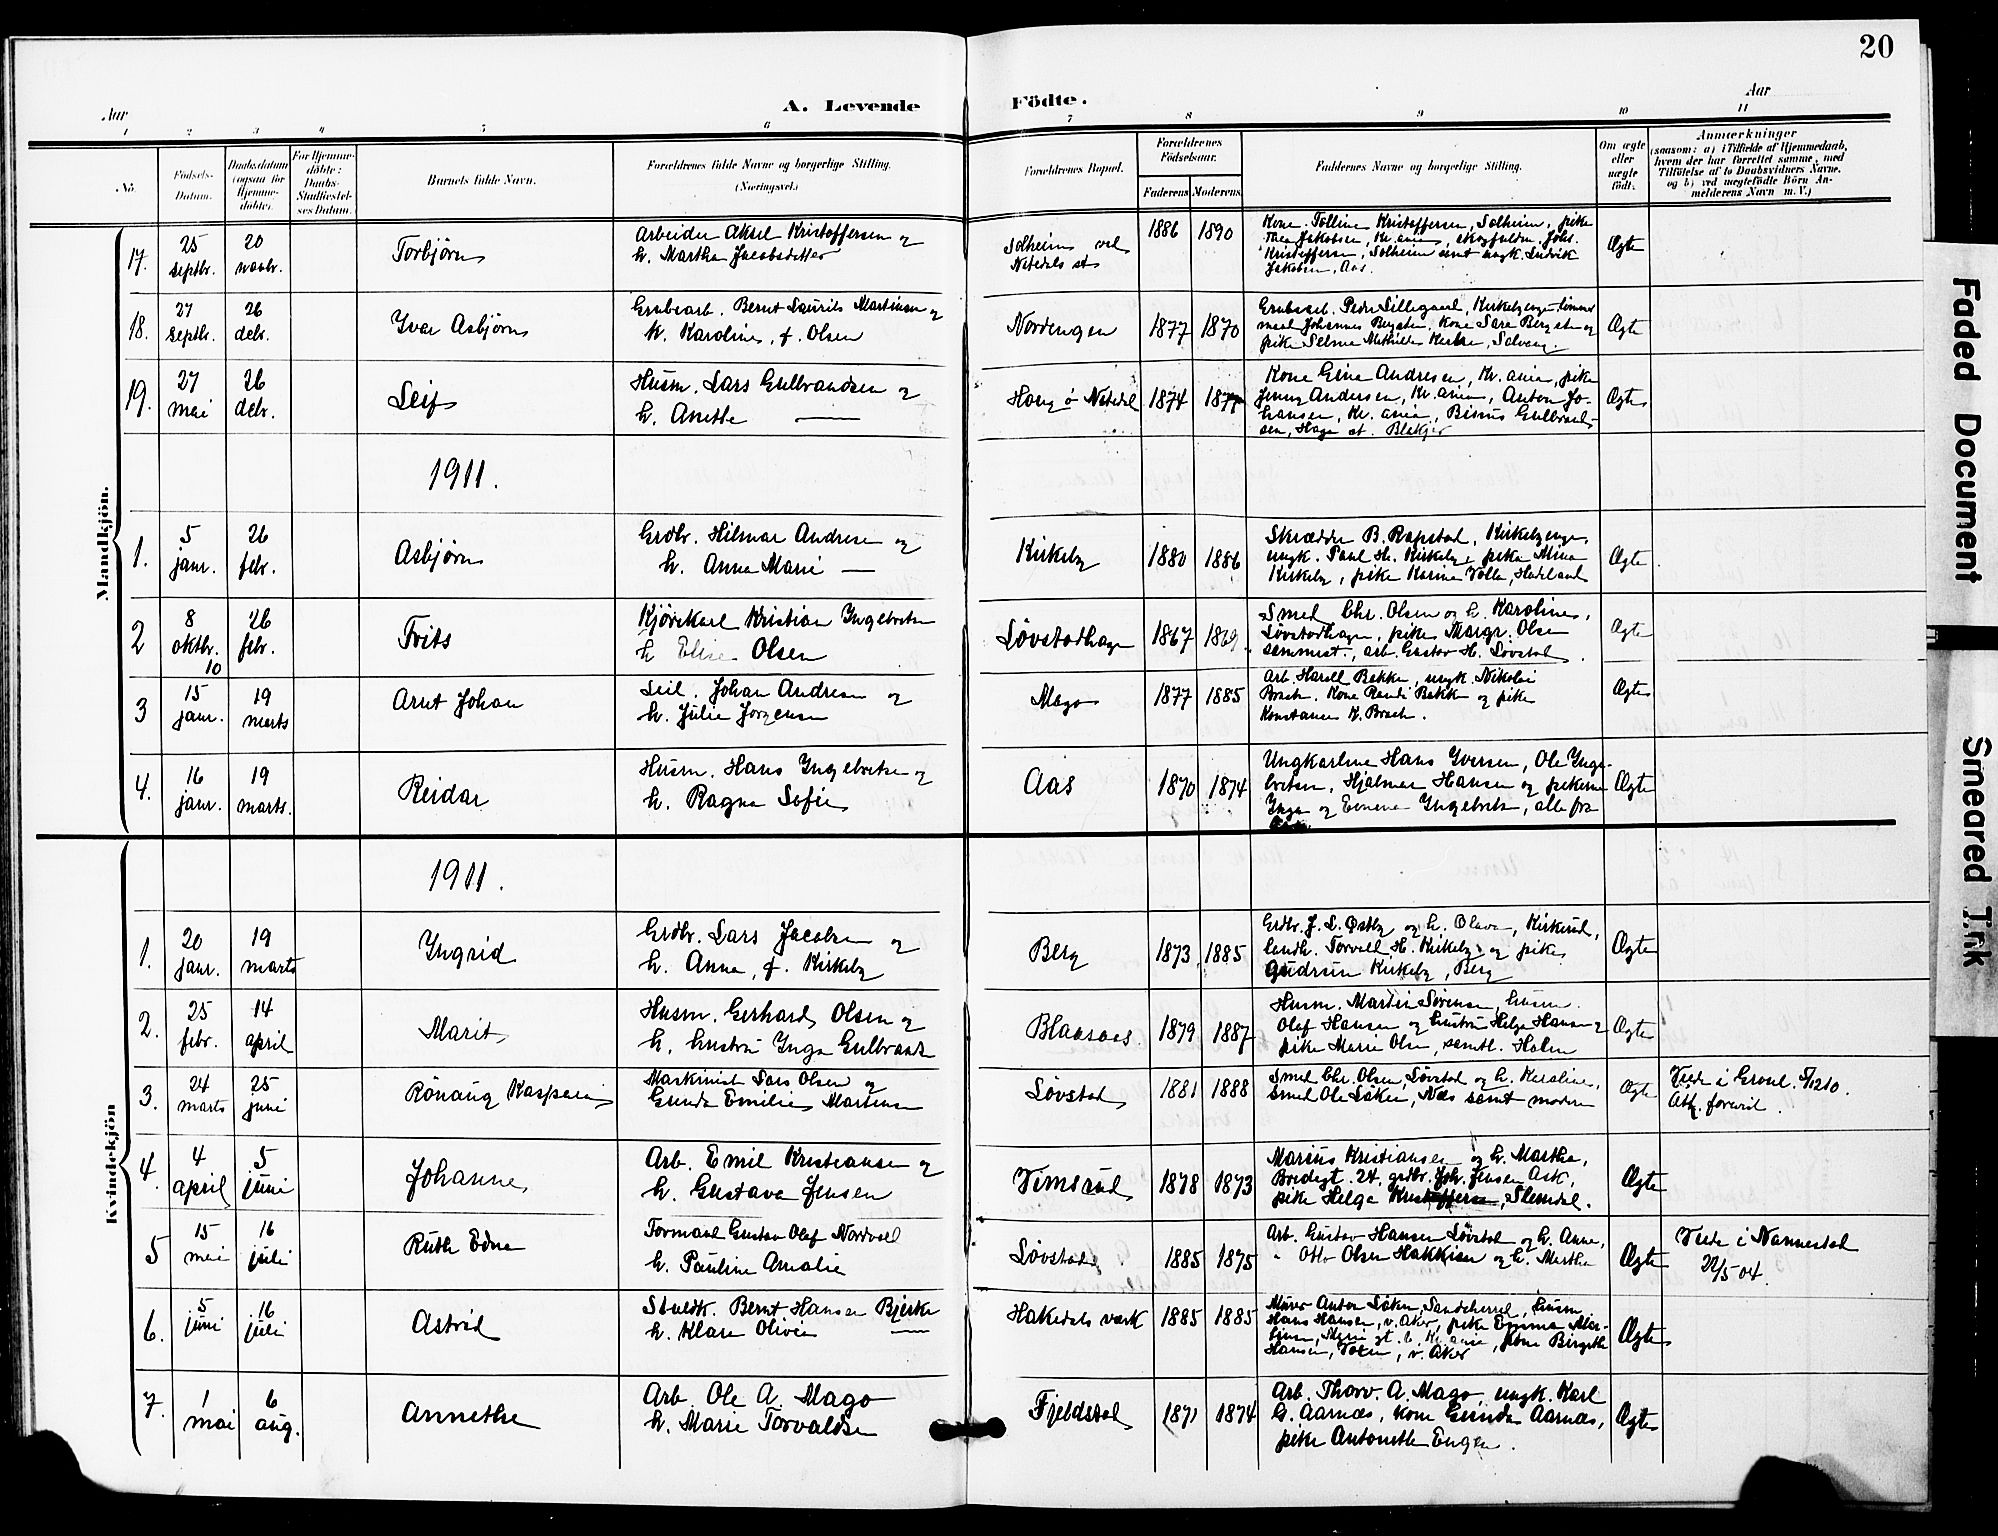 20
Aar
A. Levende
Födte.
Aar
1 2 3 4 5 6 7 8 9 10 11
No.
Födsels-
Datum.
Daabsdatum
(ogsaa for
Hjemme-
döbte).
For Hjemme-
döbte:
Daabs-
Stadfæstel-
ses Datum.
Barnets fulde Navn.
Foræeldrenes fulde Navne og borgerlige Stilling.
(Næringsvei.)
Forældrenes Bopæl.
Forældrenes
Födselsaar.
Faderens
Moderens
Faddernes Navne og borgerlige Stilling.
Om ægte
eller
uægte
født.
Anmærkninger
(saasom: a) i Tilfælde af Hjemmedaab,
hvem der har forrettet samme, med
Tilföielse af to Daabsvidners Navne,
og b) ved uægtefödte Börn An-
melderens Navn m. V.)
Mandkjön.
17.
25
septbr.
20
novbr.
Torbjørn
Arbeider Aksel Kristoffersen og
h. Martha Jacobsdatter
Solheim ved
Nitedals st
1886
1890
Kone Tolline Kristoffersen, Solheim, pike
Thea Jakobsen, Kr.ania, Johs.
Kristoffersen, Solheim samt ungk. Ludvik
Jakobsen, Aas.
Ægte
18.
27
septbr.
26
debr.
Ivar Asbjørn
Grubearb. Bernt Laurits Martinsen og
h. Karoline, f. Olsen
Nordengen
1877
1870
Grubearb. Peder Lillegaard, Kirkebyenge, tømmer
mand Johannes Bergsten, kone Sara Bergsten og
pike Selma Mathilde Solvang.
Ægte
19.
27
mai
26
debr.
Leif
Husm. Lars Gulbrandsen og
h. Anette —
Haug i Nitedal
1874
1877
Kone Gina Andresen, Kr.ania, pike
Jenny Andersen, Kr.ania, Anton Jo-
hansen, Kr.ania, Gulbrand-
sen, Haga st. Blakjer
Ægte
1911.
1.
5
janr.
26
febr.
Asbjørn
Grdbr. Hilmar Andresen og
h. Anna Marie —
Kirkeby
1880
1886
Skrædder B. Rapstad, Kirkebyenge,
ungk. Paul H. Kirkeby, pike Mina
Kirkeby, pike Karine Volla, Hadeland
Ægte
2
8
oktbr.
10
26
febr.
Frits
Kjørekarl Kristian Ingebretsen
h Elise Olsen
Løvstadhagen
1867
1869
Smed Chr. Olsen og h. Karoline,
Løvstadhagen, pike Margr. Olsen
sammest., arb. Gustav H. Løvstad.
Ægte
3
15
janr.
19
marts
Arnt Johan
Leil. Johan Andresen og
h. Julie Jørgensen
Mago
1877
1885
Arb. Harald Bakken, ungk. Nikolai
Braah. Kone Randi Bakken og pike
Konstance K. Braah.
Ægte
4.
16
janr.
19
marts.
Reidar
Husm. Hans Ingebretsen og
h. Ragna Sofie
Aas
1870
1874
Ungkarlene Hans Iversen, Ole Inge-
bretsen, Hjalmar Hansen og pikerne
Inga og Ingebretsen, alle fra
Aas.
Ægte
Kvindekjön
1911.
1.
20
janr.
19
marts
Ingrid
Grdbr. Lars Jacobsen og
h. Anna, f. Kirkeby
Berg
1873
1885
Grdbr. J. L. Østby og h. Olava, Kirkerud,
landh. Torvald H. Kirkeby og pike
Gudrun Kirkeby, Berg
Ægte
2.
25
febr.
14
april
Marit
Husm. Gerhard Olsen og
h. hustru Inga Gulbrands
Blaaraas
1879
1887
Husm. Martin Sørensen, husm.
Olaf Hansen og hustru Helga Hansen og
pike Marie Olsen, samtl. Holm
Ægte
3.
24
marts
25
juni
Rønaug Kasparia
Maskinist Lars Olsen og
Gunda Emilie Martinsen
Løvstad
1881
1888
Smed Chr. Olsen, Løvstad og h. Karoline,
Smed Ole Løken, Næs samt moderen
Ægte
Viede i Grorud. 5/1210.
Att. forevist.
4.
4
april
5
juni
Johanne
Arb. Emil Kristiansen og
h. Gustava Jensen
Vimsrud
1878
1873
Marius Kristiansen og h. Martha,
Bredegt. 24, grdbr. Joh. Jensen Ask,
pike Helga Slemdal.
Ægte
5
15
mai
16
juli
Ruth Edna
Formand Gustav Olaf Nordvold
h. Pauline Amalie
Løvstad
1885
1875
Arb. Gustav Hansen Løvstad og h. Anne,
" Otto Olsen Hakkisen og h. Martha
Ægte
Viede i Nannestad
22/5 04.
6.
5
juni
16
juli
Astrid
Bernt Hansen Bjerke
h. Klara Olivie —
Hakedals værk
1885
1885
Murer Anton Løken, Sandeherred, husm.
Hans Hansen, v. Aker, pike Emma Mar-
tinsen, gt. 6, Kr.ania, pike Birgitte
Hansen, v. Aker
Ægte
7.
1
mai
6
aug.
Annethe
Arb. Ole A. Mago
h. Marie Torvaldsen
Fjeldstad
1871
1874
Arb. Thorv. A. Mago, ungk. Karl
G. Aarnæs, kone Gunda Aarnæs,
pike Antonette Engen.
Ægte
Faded Document
Smeared Ink